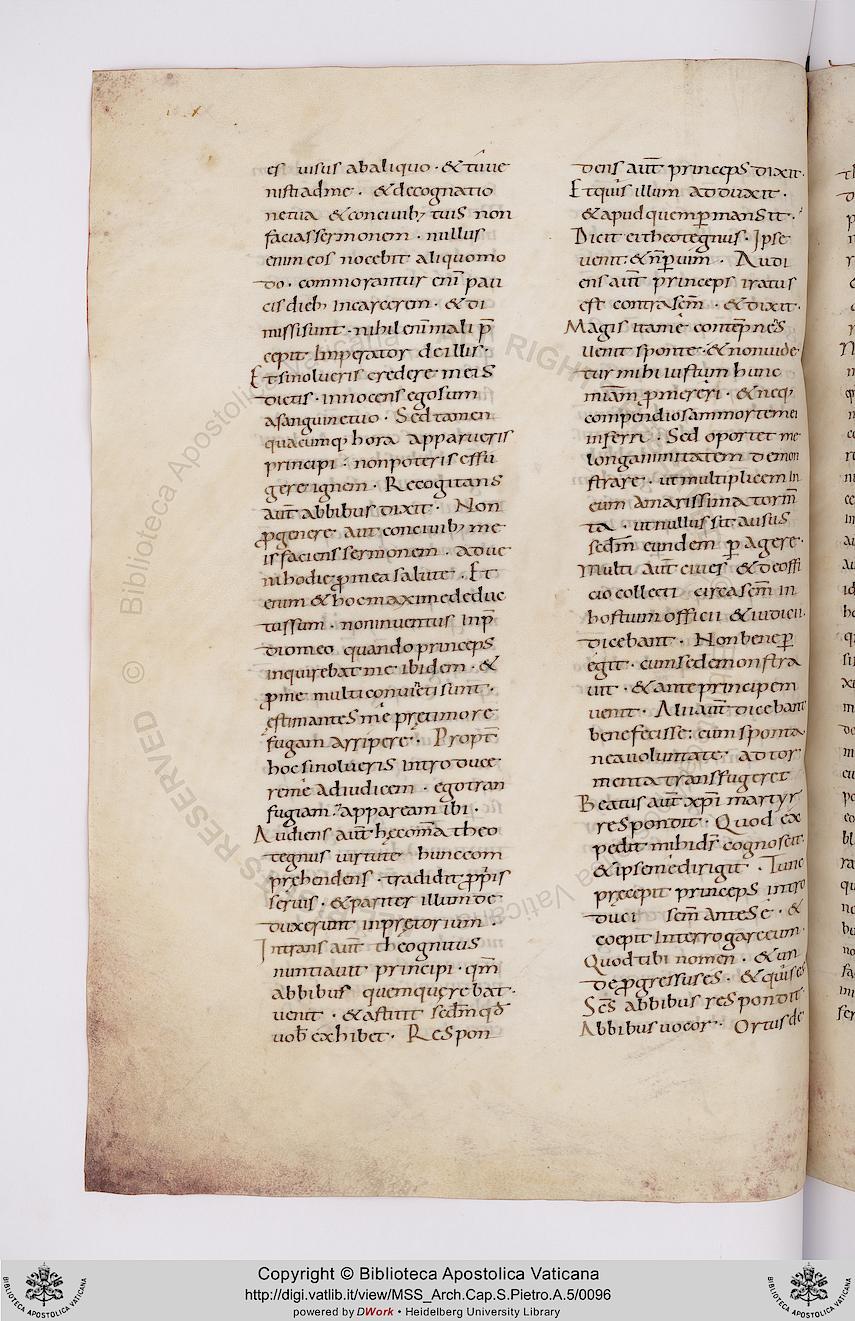 es uisus abaliquo · & tu ue
nistiadme · & decognatio
netua & conciuib; tuis non
faciassermonem · nullus
enim eos nocebit aliquomo
do · commorantur eni pau
cis dieb; incarcerem · & di
missi sunt · nihil eni mali p̄
cepit Imperator deillis ·
Et sinolueris credere meis
dictis · innocens ego sum
asanguinetuo · Sed tamen
quacumq; hora apparueris
principi · nonpoteris effu
gere ignem · Recogitans
aut̄ abbibus dixit · Non
ꝓgenere aut conciuib; me
is faciens sermonem · adue
ni hodie ꝓmea salute · Et
enim & hoc maxime deduc
tus sum · noninuentus inp̄
diomeo quando princeps
inquirebat me ibidem · &
ꝓme multi conuicti sunt ·
ęstimantes me prętimore
fugam arripere · Propt̄
hoc sinolueris introduce
reme adiudicem · egotran
fugiam · appaream ibi ·
Audiens aut̄ hęc om̄a theo
tegnus uirtute hunc com
pręhendens · tradidit ꝓpiis
seruis · & pariter illum de
duxerunt inprętorium ·
Intrans aut̄ theognitus
nuntiauit principi · qm̄
abbibus quemquęrebat ·
uenit · & astitit sed̄m qd̄
uob̄ exhibet · Respon
dens aut̄ princeps dixit ·
Et quis illum adduxit ·
& apud quem p̱mansit ·
Dicit ei theotegnus · Ipse
uenit · & n̄ p̱ uim · Audi
ens aut̄ princeps iratus
est contra sc̄m · & dixit ·
Magis itame contēpnes
uenit sponte · & nonuide
tur mihi iustum hunc
miām ꝓmereri · & neq;
compendiosammortemei
inferri · Sed oportet me
longanimitatem demon
strare · ut multiplicem in
eum amarissima torm̄
ta · ut nullus sit ausus
sed̄m eundem p̱agere ·
Multi aut̄ ciues & deoffi
cio collecti circa sc̄m in
hostium officii & iudicii ·
dicebant · Non bene p̱
egit · cum se demonstra
uit · & ante principem
uenit · Alii aut̄ dicebant
benefecisse · cum sponta
nea uoluntate · ad tor
menta transfugeret
Beatus aut̄ xp̄i martyr
respondit · Quod ex
pedit mihi dn̄s cognoscit ·
& ipse me dirigit · Tunc
pręcepit princeps intro
duci sc̄m ante se · &
coepit Interrogare eum ·
Quod tibi nomen · & un
de ꝓgressus es · & quis es
Sc̄s abbibus respondit ·
Abbibus uocor · Ortus de
© Biblioteca Apostolica Vaticana
ALL RIGHTS RESERVED
Copyright © Biblioteca Apostolica Vaticana
http://digi.vatlib.it/view/MSS_Arch.Cap.S.Pietro.A.5/0096
powered by DWork • Heidelberg University Library